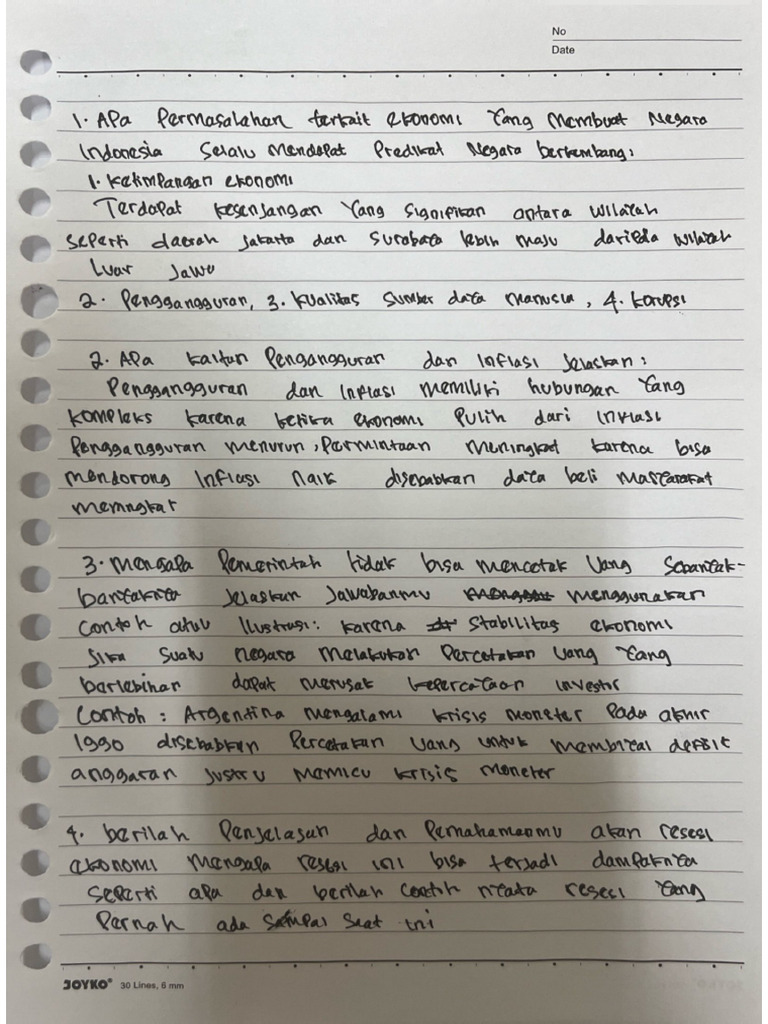 No
Date
1. Apa Permasalahan terkait ekonomi Yang Membuat Negara
Indonesia Selalu Mendapat Predikat Negara berkembang:
1. Ketimpangan ekonomi
Terdapat kesenjangan Yang Signifikan antara wilayah
seperti daerah Jakarta dan Surabaya lebih maju daripda wilayah
Luar Jawa
2. Penggangguran, 3. Kualitas Sumber daya Manusia, 4. Korupsi
2. Apa kaitan Pengangguran dan Inflasi Jelaskan:
Penggangguran dan Inflasi memiliki hubungan Yang
kompleks karena ketika ekonomi Pulih dari Inflasi
Penggangguran menurun, Permintaan Meningkat karena bisa
mendorong Inflasi Naik disebabkan daya beli Masyarakat
meningkat
3. Mengapa Pemerintah tidak bisa mencetak Uang Sebanyak-
banyaknya Jelaskan Jawabanmu menggunakan
Contoh atau Ilustrasi: karena Stabilitas ekonomi
Jika Suatu negara Melakukan Percetakan Uang Yang
berlebihan dapat merusak kepercayaan investor
Contoh: Argentina mengalami krisis moneter Pada akhir
1990 disebabkan Percetakan Uang untuk membiyai defisit
anggaran Justru Memicu krisis moneter
4. berilah Penjelasan dan Pemahamanmu akan resesi
ekonomi Mengapa resesi ini bisa terjadi dampaknya
seperti apa dan berilah contih nyata resesi Yang
Pernah ada Sampai Saat ini
JOYKO® 30 Lines, 6 mm